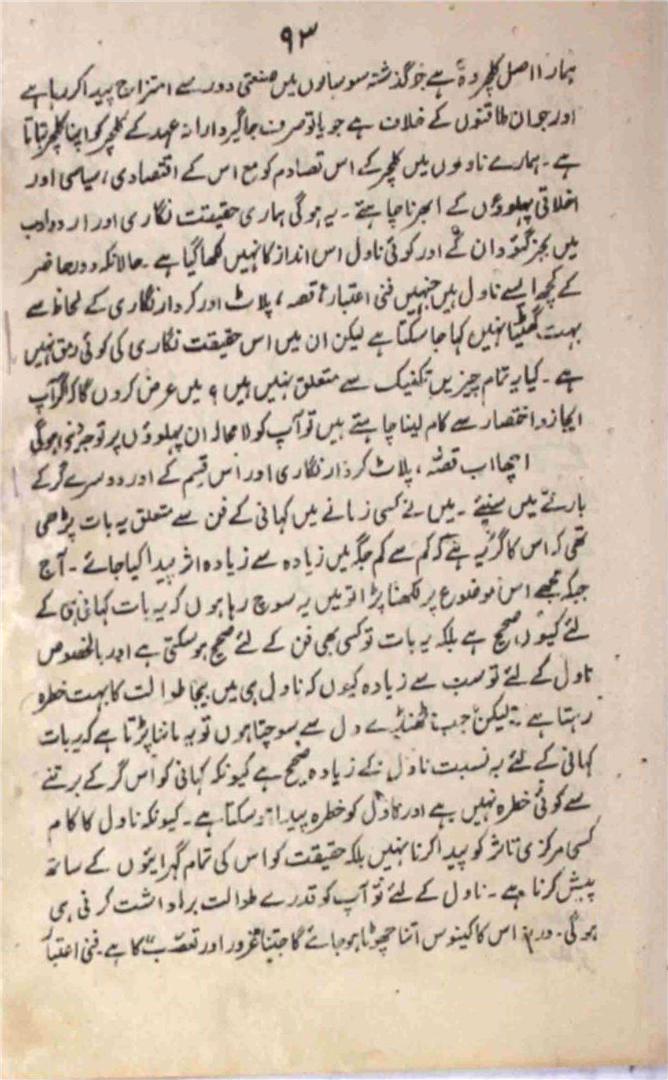 ۹۳
ہمارا اصل کلچر وہ ہے جو گذشتہ سو سالوں میں صنعتی دور سے امتزاج پیدا کر رہا ہے
اور جو ان طاقتوں کے خلاف ہے جو یا تو صرف جاگیردارانہ عہد کے کلچر کو اپنا کلچر بتاتا
ہے۔ ہمارے ناولوں میں کلچر کے اس تصادم کو مع اس کے اقتصادی، سیاسی اور
اخلاقی پہلوؤں کے ابھرنا چاہئے۔ یہ ہو گی ہماری حقیقت نگاری اور اردو ادب
میں بجز گئودان کے اور کوئی ناول اس انداز کا نہیں لکھا گیا ہے۔ حالانکہ دور حاضر
کے کچھ ایسے ناول ہیں جنہیں فنی اعتبار، قصہ، پلاٹ اور کردار نگاری کے لحاظ سے
بہت گھٹیا نہیں کہا جا سکتا ہے لیکن ان میں اس حقیقت نگاری کی کوئی رمق نہیں
ہے۔ کیا یہ تمام چیزیں تکنیک سے متعلق نہیں ہیں؟ میں عرض کروں گا کہ اگر آپ
ایجاز و اختصار سے کام لینا چاہتے ہیں تو آپ کو لامحالہ ان پہلوؤں پر توجہ دینی ہو گی
اچھا اب قصّہ، پلاٹ کردار نگاری اور اس قسم کے اور دوسرے گر کے
بارے میں سنیئے۔ میں نے کسی زمانے میں کہانی کے فن سے متعلق یہ بات پڑھی
تھی کہ اس کا گر یہ ہے کہ کم سے کم جگہ میں زیادہ سے زیادہ اثر پیدا کیا جائے۔ آج
جبکہ مجھے اس موضوع پر لکھنا پڑا تو میں یہ سوچ رہا ہوں کہ یہ بات کہانی ہی کے
لئے کیوں صحیح ہے بلکہ یہ بات تو کسی بھی فن کے لئے صحیح ہو سکتی ہے اور بالخصوص
ناول کے لئے تو سب سے زیادہ کیوں کہ ناول ہی میں بیجا طوالت کا بہت خطرہ
رہتا ہے۔ لیکن جب ٹھنڈے دل سے سوچتا ہوں تو یہ ماننا پڑتا ہے کہ یہ بات
کہانی کے لئے بہ نسبت ناول کے زیادہ صحیح ہے کیونکہ کہانی کو اس گر کے برتنے
سے کوئی خطرہ نہیں ہے اور ناول کو خطرہ پیدا ہو سکتا ہے۔ کیونکہ ناول کا کام
کسی مرکزی تاثر کو پیدا کرنا نہیں بلکہ حقیقت کو اس کی تمام گہرائیوں کے ساتھ
پیش کرنا ہے۔ ناول کے لئے تو آپ کو قدرے طوالت برداشت کرنی ہی
ہو گی۔ ورنہ اس کا کینوس اتنا چھوٹا ہو جائے گا جتنا غرور اور تعصّب کا ہے۔ فنی اعتبار